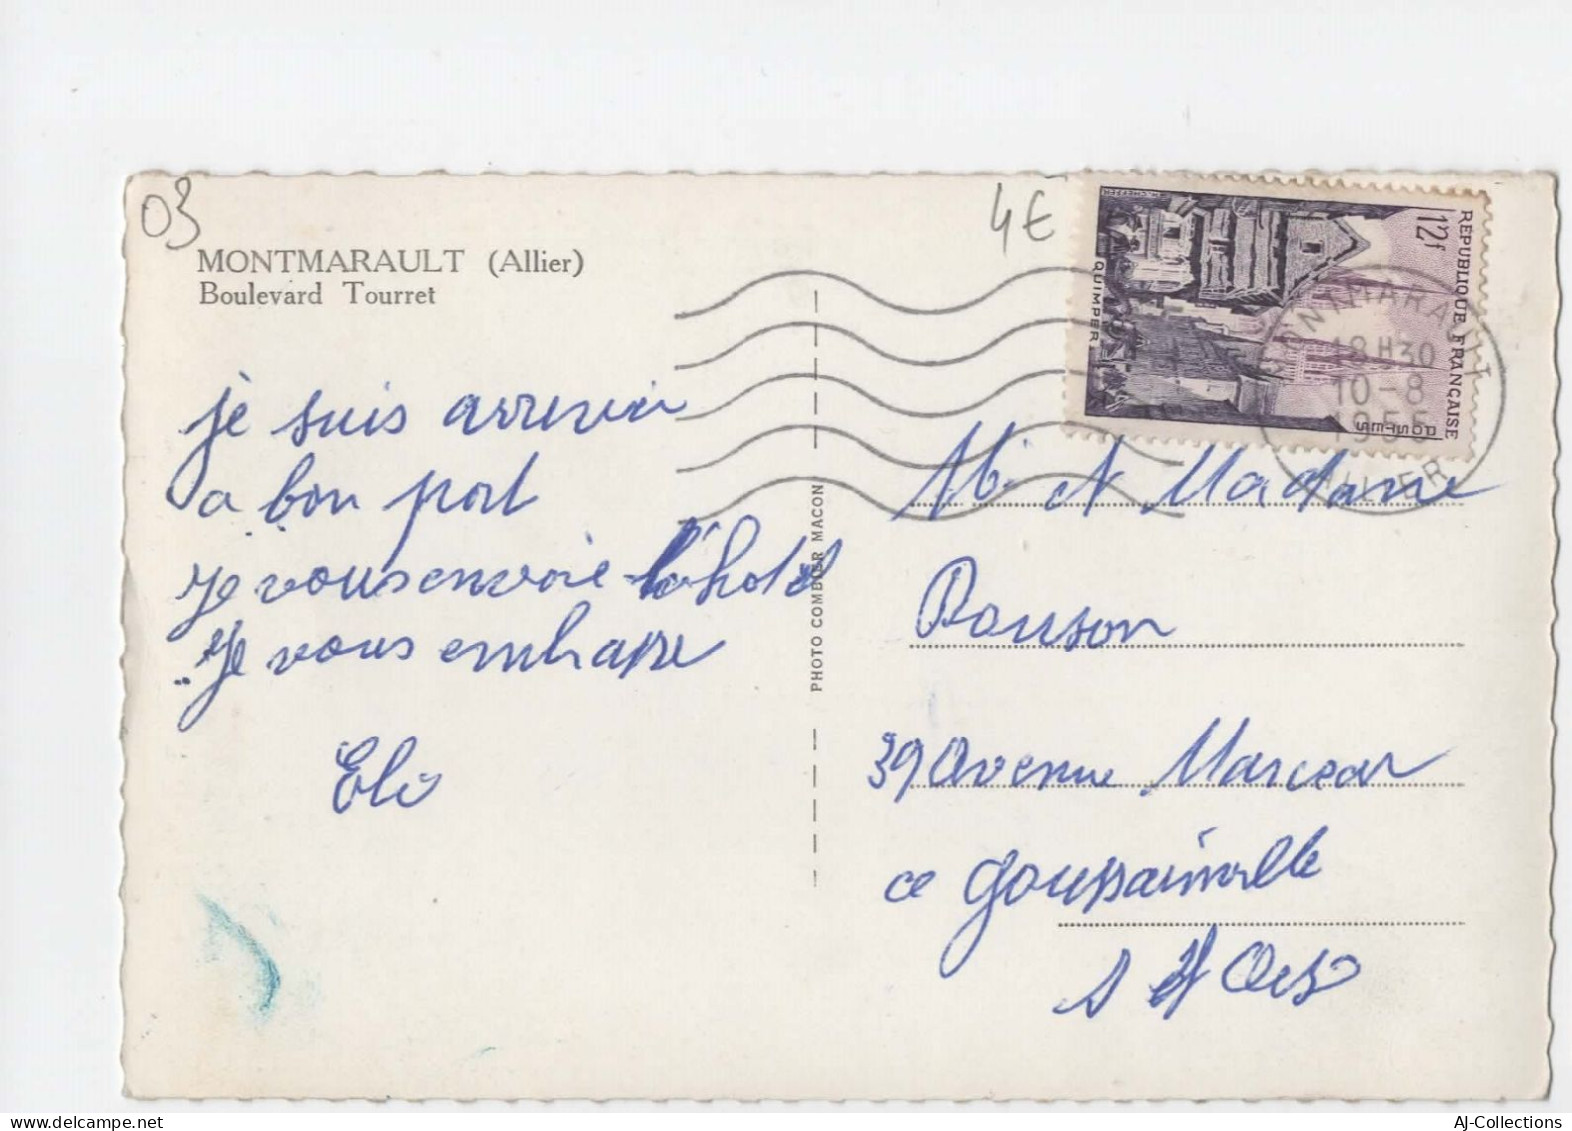 03
4€
MONTMARAULT (Allier)
Boulevard Tourret
je suis arruvir
a bon port
je vous envoie l'hotel
je vous embrasse
PHOTO COMBIER MACON
H. CHEFFER
QUIMPER
12f
REPUBLIQUE FRANÇAISE
POSTES
MONTMARAULT
18H30
10-8
1955
ALLIER
Mr et Madame
39 Avenue Marceau
a goussainville
S et Oise
AJ-Collections